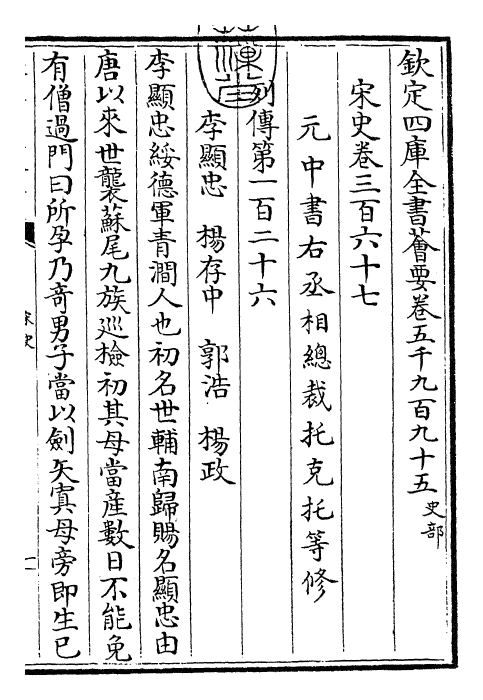 欽定四庫全書薈要卷五千九百九十五史部
宋史卷三百六十七
元中書右丞相總裁托克托等修
列傳第一百二十六
李顯忠　楊存中　郭浩　楊政
李顯忠綏德軍青澗人也初名世輔南歸賜名顯忠由
唐以來世襲蘇尾九族巡檢初其母當産數日不能免
有僧過門曰所孕乃奇男子當以劍矢寘母旁即生已
宋史